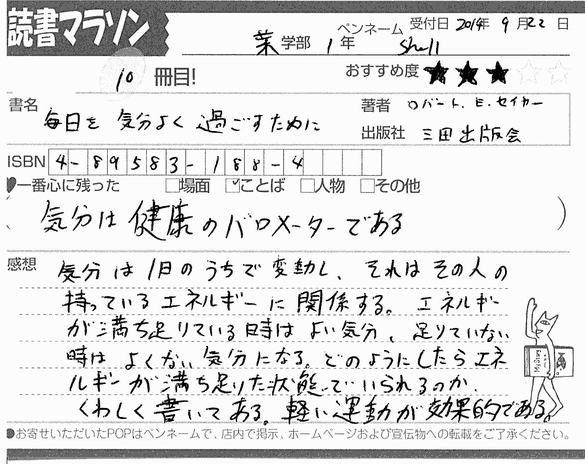 読書マラソン
ペンネーム 受付日 2014年 9月22日
薬学部 1年 Shell
10 冊目! おすすめ度 ★★★☆☆
書名 毎日を気分よく過ごすために
著者 ロバート.E.セイヤー
出版社 三田出版会
ISBN 4-89583-188-4
♥一番心に残った □場面 ☑ことば □人物 □その他
気分は健康のバロメーターである
感想 気分は1日のうちで変動し、それはその人の
持っているエネルギーに関係する。エネルギー
が満ち足りている時はよい気分、足りていない
時はよくない気分になる。どのようにしたらエネ
ルギーが満ち足りた状態でいられるのか、
くわしく書いてある。軽い運動が効果的である。
●お寄せいただいたPOPはペンネームで、店内で掲示、ホームページおよび宣伝物への転載をご了承ください。